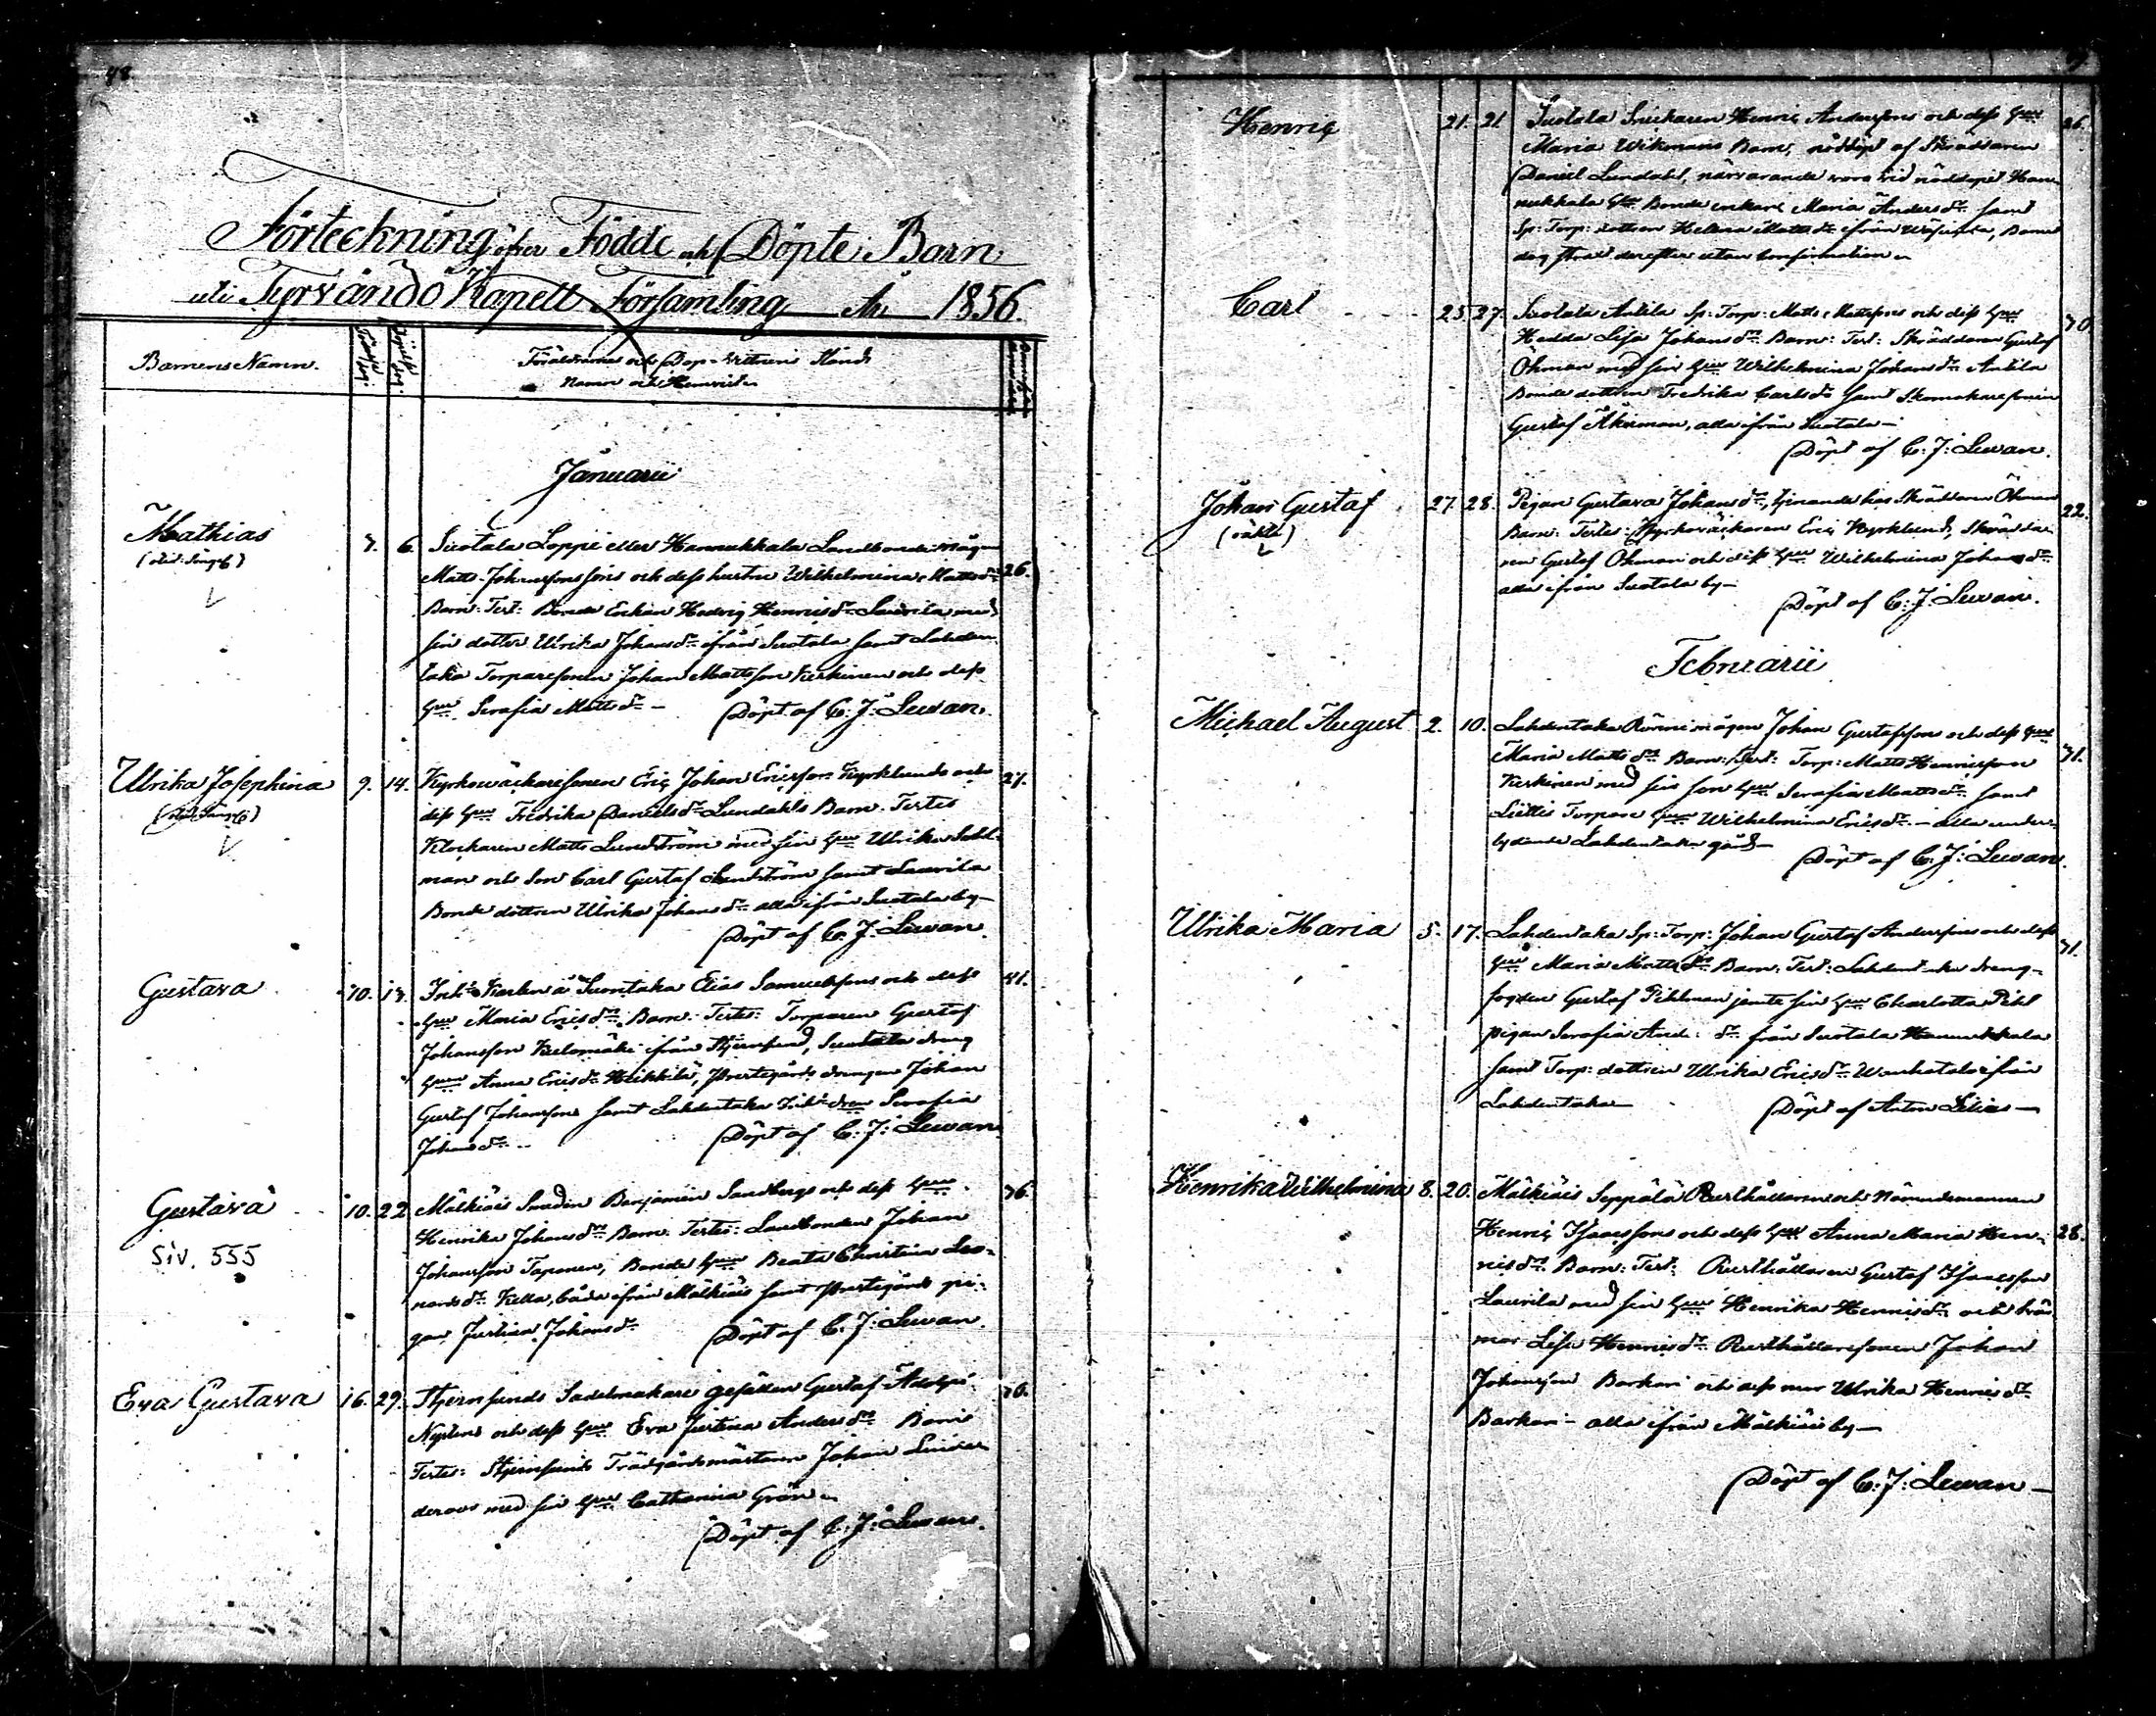 48.
Förteckning öfver Födde och Döpte Barn
uti Tyrvändö Kapell Församling År 1856.
Barnens Namn.
Föräldrarnes och Dop-vittnens Stånd
Namn och Hemvister
Januarii
Mathias 6. Suotala Loppi eller Hannukkala Landbonde mågen
Matts Johansson och dess hustru Wilhelmina Mattsdr 26.
Barn: Test: Bonde Enkan Hedvig Henricsdr Laurila med
sin dotter Ulrika Johansdr ifrån Suotala samt Lahden
taka Torparesonen Johan Mattsson Kerkinen och dess
hru Serafia Mattsdr – Döpt af C. J: Lewan.
Ulrika Josephina 9. 14. Kyrkowäckaresonen Eric Johan Ericsson Kyrklunds och 27.
dess hru Fredrika Danielsdr Lundahls Barn. Testes
Klockaren Matts Lundström med sin hru Ulrika Sahl-
man och Son Carl Gustaf Lundström samt Laurila
Bonde dottren Ulrika Johansdr alla ifrån Suotala by –
Döpt af C. J. Lewan.
Gustava 10. Elias Samuelssons och dess 41.
hru Maria Ericsdr Barn. Testes: Torparen Gustaf
Johansson ifrån Stjernsund, Suotala dreng
hrun Anna Ericsdr Heikkilä, Prestegårds drengen Johan
Gustaf Johansson samt Lahdentaka Serafia
Johansdr Döpt af C. J: Lewan
Gustava 10. 22. Mälkiäis Smeden Benjamin Sandbergs och dess hru 36.
Siv. 555
Henrika Johansdr Barn. Testes: Landbonden Johan
Johansson Taponen, Bonde hrun Beata Christina Leo-
nardsdr Kella, båda ifrån Mälkiäis samt Prestegårds pi-
gan Justina Johansdr Döpt af C. J. Lewan.
Eva Gustava 16. 29. Stjernsunds Sadelmakare gesällen Gustaf Adolph
och dess hru Eva Justina Andersdr Barn
Testes: Stjernsunds Trädgårdsmästaren Johan
med sin hru Catharina Grön
Döpt af C. J: Lewan.
Henric 21. 21. Suotala Snickaren Henric Anderssons och dess hru 26.
Maria Wikmans Barn, nöddöpt af Skräddaren
Daniel Lundahl, närvarande voro vid nöddopet Han-
nukkala Bonde enkan Maria Andersdr samt
Sp: Torp: dottren Helena Mattsdr ifrån
dog strax derefter utan confirmation
Carl 25. 27. Suotala Anttila Sp: Torp: Matts Mattssons och dess hru 30.
Hedda Lisa Johansdr Barn: Test: Skräddaren Gustaf
Öhman med sin hru Wilhelmina Johansdr Anttila
Bonde dottren Fredrika Carlsdr samt Skomakaresonen
Gustaf Åkerman, alla ifrån Suotala –
Döpt af C. J: Lewan.
Johan Gustaf 27. 28. Pigan Gustava Johansdr, tjenande hos Skräddaren Öhman 22.
(oäkta)
Barn: Testes: Kyrkoväckaren Eric Kyrklund, Skrädda-
ren Gustaf Öhman och dess hru Wilhelmina Johansdr
alla ifrån Suotala by –
Döpt af C. J. Lewan.
Februarii
Michael August 2. 10. Lahdentaka mågen Johan Gustafssons och dess hru 31.
Maria Mattsdr Barn: Test: Torp: Matts Henricsson
Kerkinen med sin son hru Serafia Mattsdr samt
Torpare hrun Wilhelmina Ericsdr – alla under-
lydande Lahdentaka gård –
Döpt af C. J: Lewan.
Ulrika Maria 5. 17. Lahdentaka Sp: Torp: Johan Gustaf Anderssons och dess 31.
hru Maria Mattsdr Barn: Test: Lahdentaka dreng-
fogden Gustaf Pihlman jemte sin hru Charlotta Pihl
pigan Serafia Andr: dr från Suotala Hannukkala
samt Torp: dottren Ulrika Ericsdr ifrån
Lahdentaka – Döpt af Anton Lilius –
Henrika Wilhelmina 8. 20. Mälkiäis Seppälä Rusthållaren och Nämndemannen
Henric Isaacssons och dess hru Anna Maria Hen- 28.
ricsdr Barn: Test: Rusthållaren Gustaf Isaacsson
Laurila med sin hru Henrika Henricsdr och svär-
mor Lisa Henricsdr Rusthållaresonen Johan
Johansson Barkari och dess mor Ulrika Henricsdr
Barkari – alla ifrån Mälkiäis by –
Döpt af C. J: Lewan –